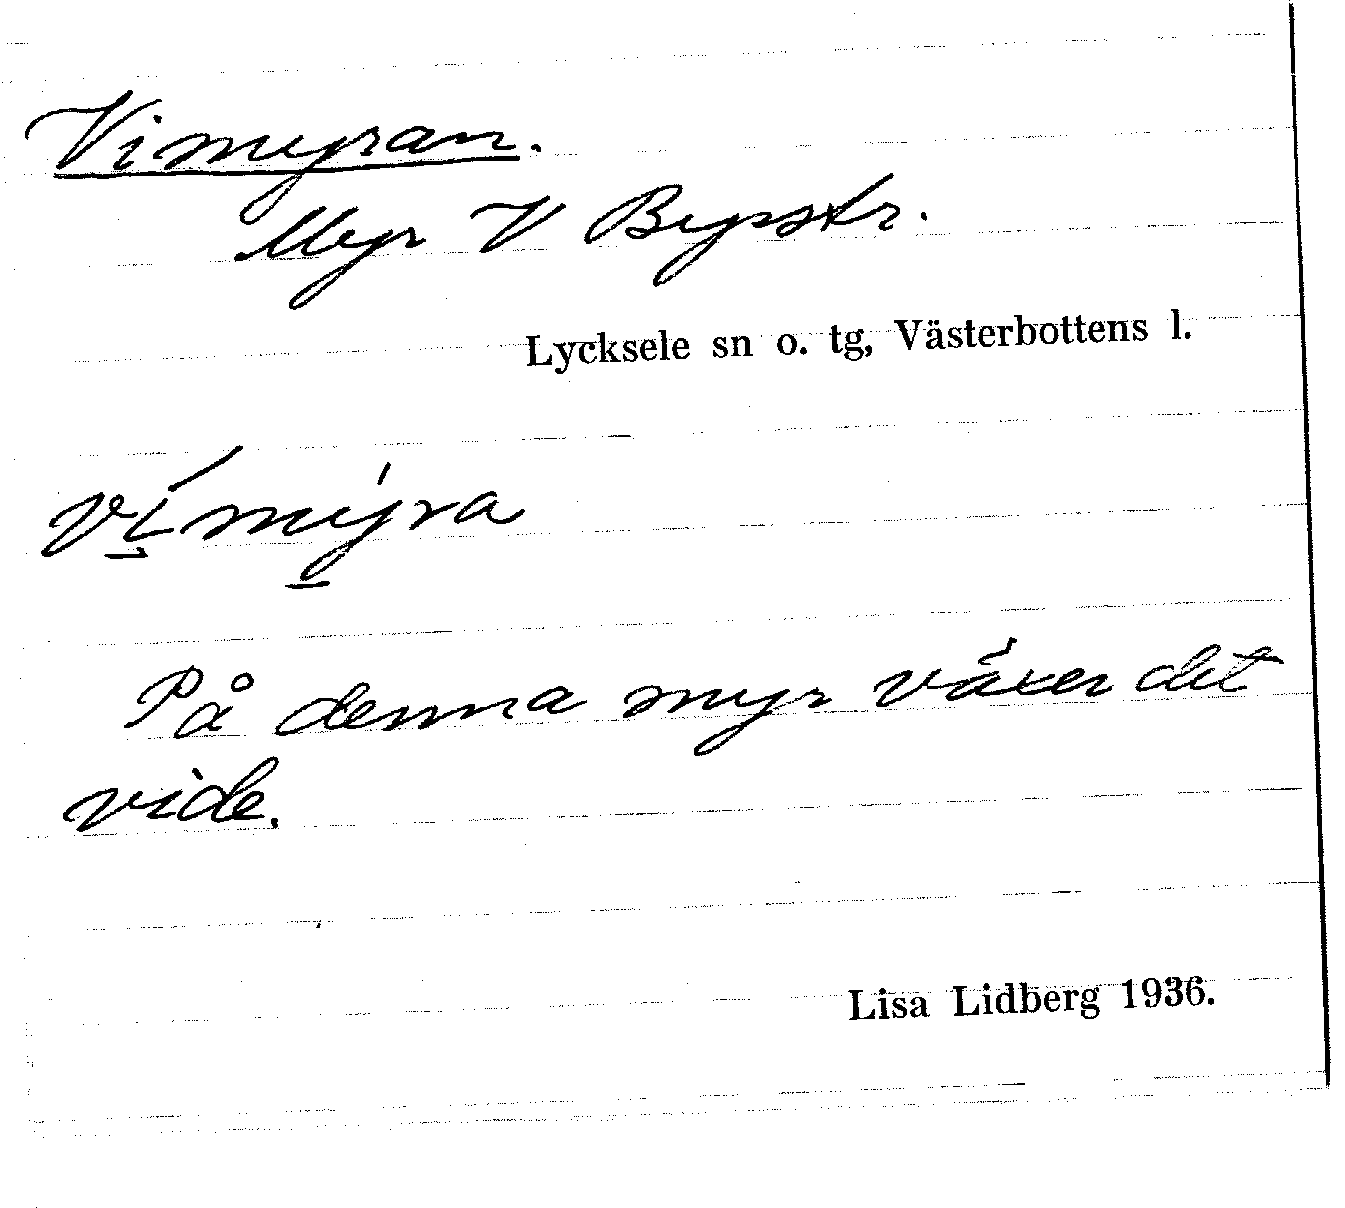 Vimyran.
Myr V Bysstr.
Lycksele sn o. tg, Västerbottens l.
ví̱mý̱ra
På denna myr växer det
vide.
Lisa Lidberg 1936.